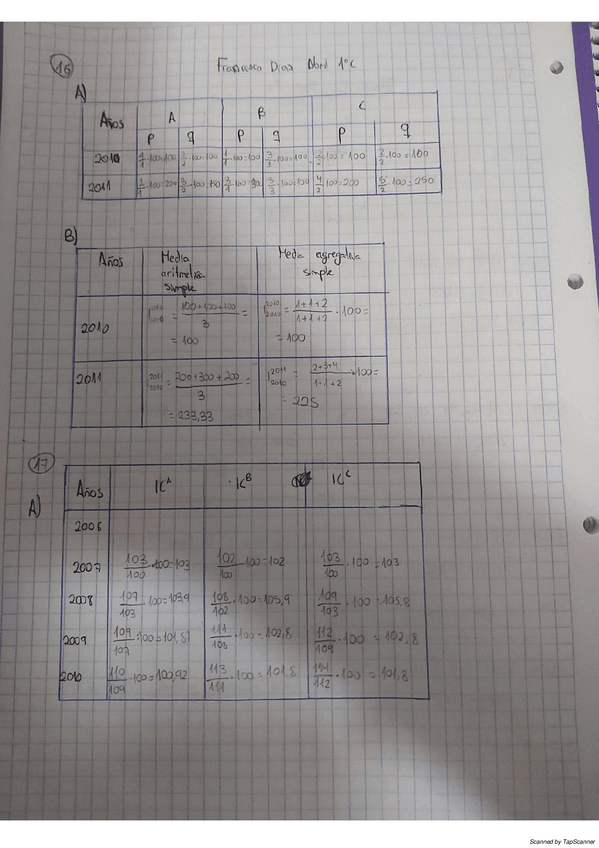 16
Francisco Diaz 1ºC
A)
Años A B C
p q p q p q
2010 1/1·100=100 2/2·100=100 1/1·100=100 3/3·100=100 2/2·100=100 2/2·100=100
2011 2/1·100=200 3/2·100=150 3/1·100=30 3/3·100=100 4/2·100=200 5/2·100=250
B)
Años Media aritmetica simple Media agregativa simple
2010 = 100+100+100/3 = = 1+1+2/1+1+2 · 100 =
= 100 = 100
2011 2011/2010 = 200+300+200/3 = 2011/2010 = 2+3+4/1+1+2 ·100=
= 233,33 = 225
17
A)
Años ICᴬ ·ICᴮ ICᶜ
2006
2007 103/100·100=103 102/100·100=102 103/100·100=103
2008 107/103·100=103,9 108/102·100=105,9 109/103·100=105,8
2009 109/107·100=101,87 111/108·100=102,8 112/109·100=102,8
2010 110/109·100=100,92 113/111·100=101,8 114/112·100=101,8
Scanned by TapScanner